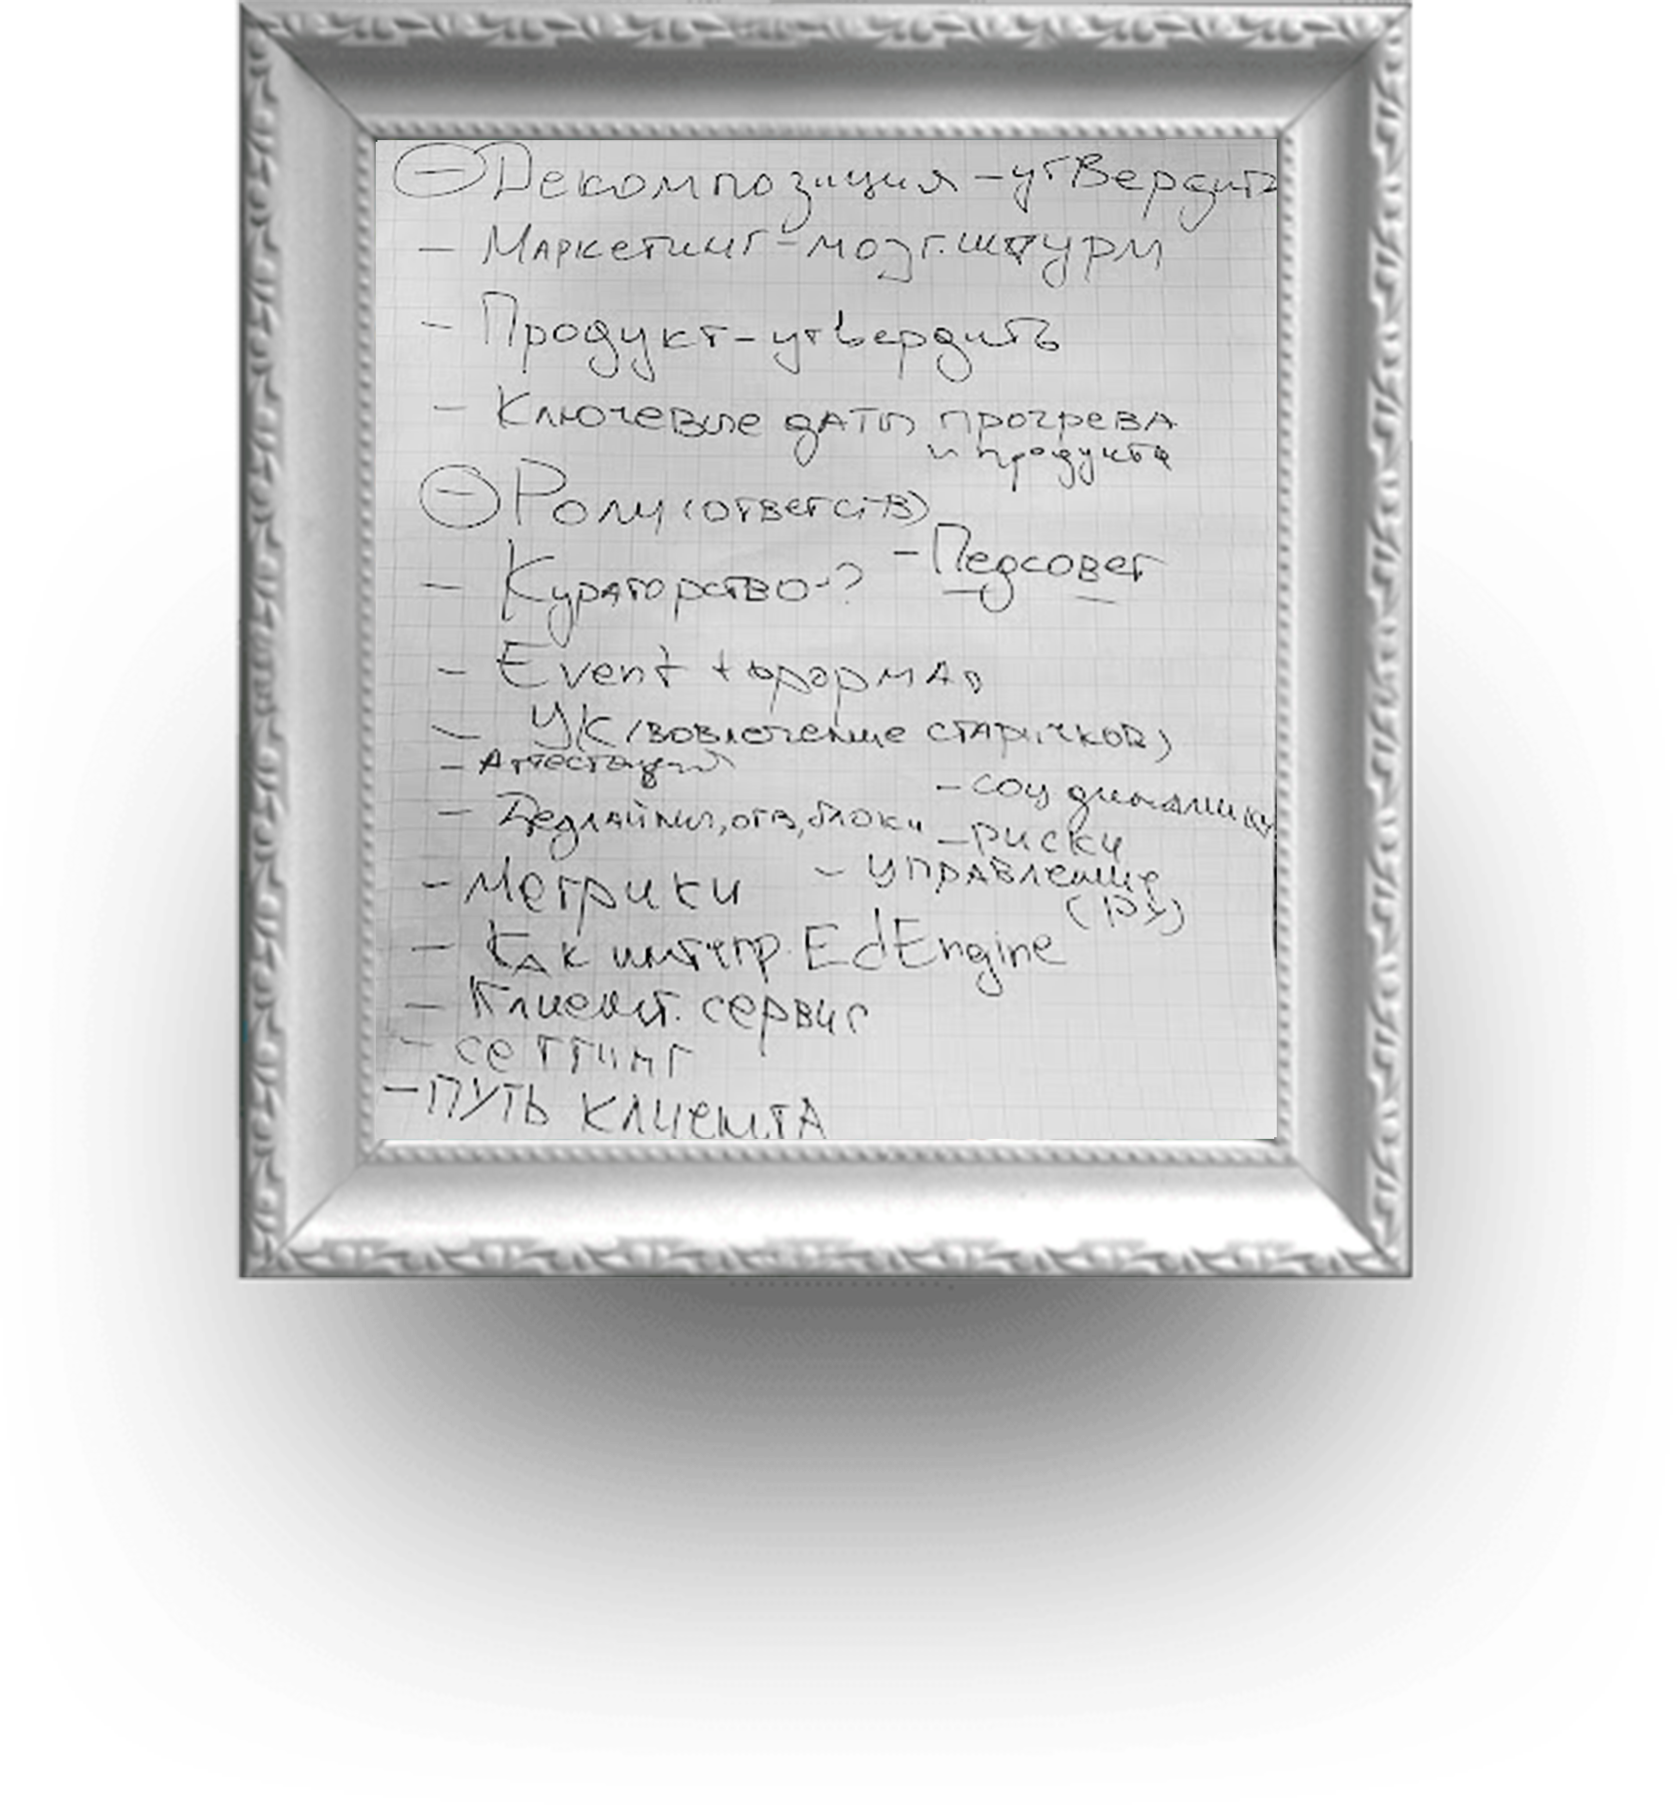 - Декомпозиция - утвердить
- Маркетинг - мозг. штурм
- Продукт - утвердить
- Ключевые даты прогрева
и продукта
- Роли (ответств)
- Педсовет
- Кураторство - ?
- Event +
- УК (вовлечение старичков)
- Аттестация
- соц динамика
- Дедлайны, отв, блоки
- риски
- Метрики
- управление
- Как интегр. EdEngine
- Клиент. сервис
- сеттинг
- путь клиента